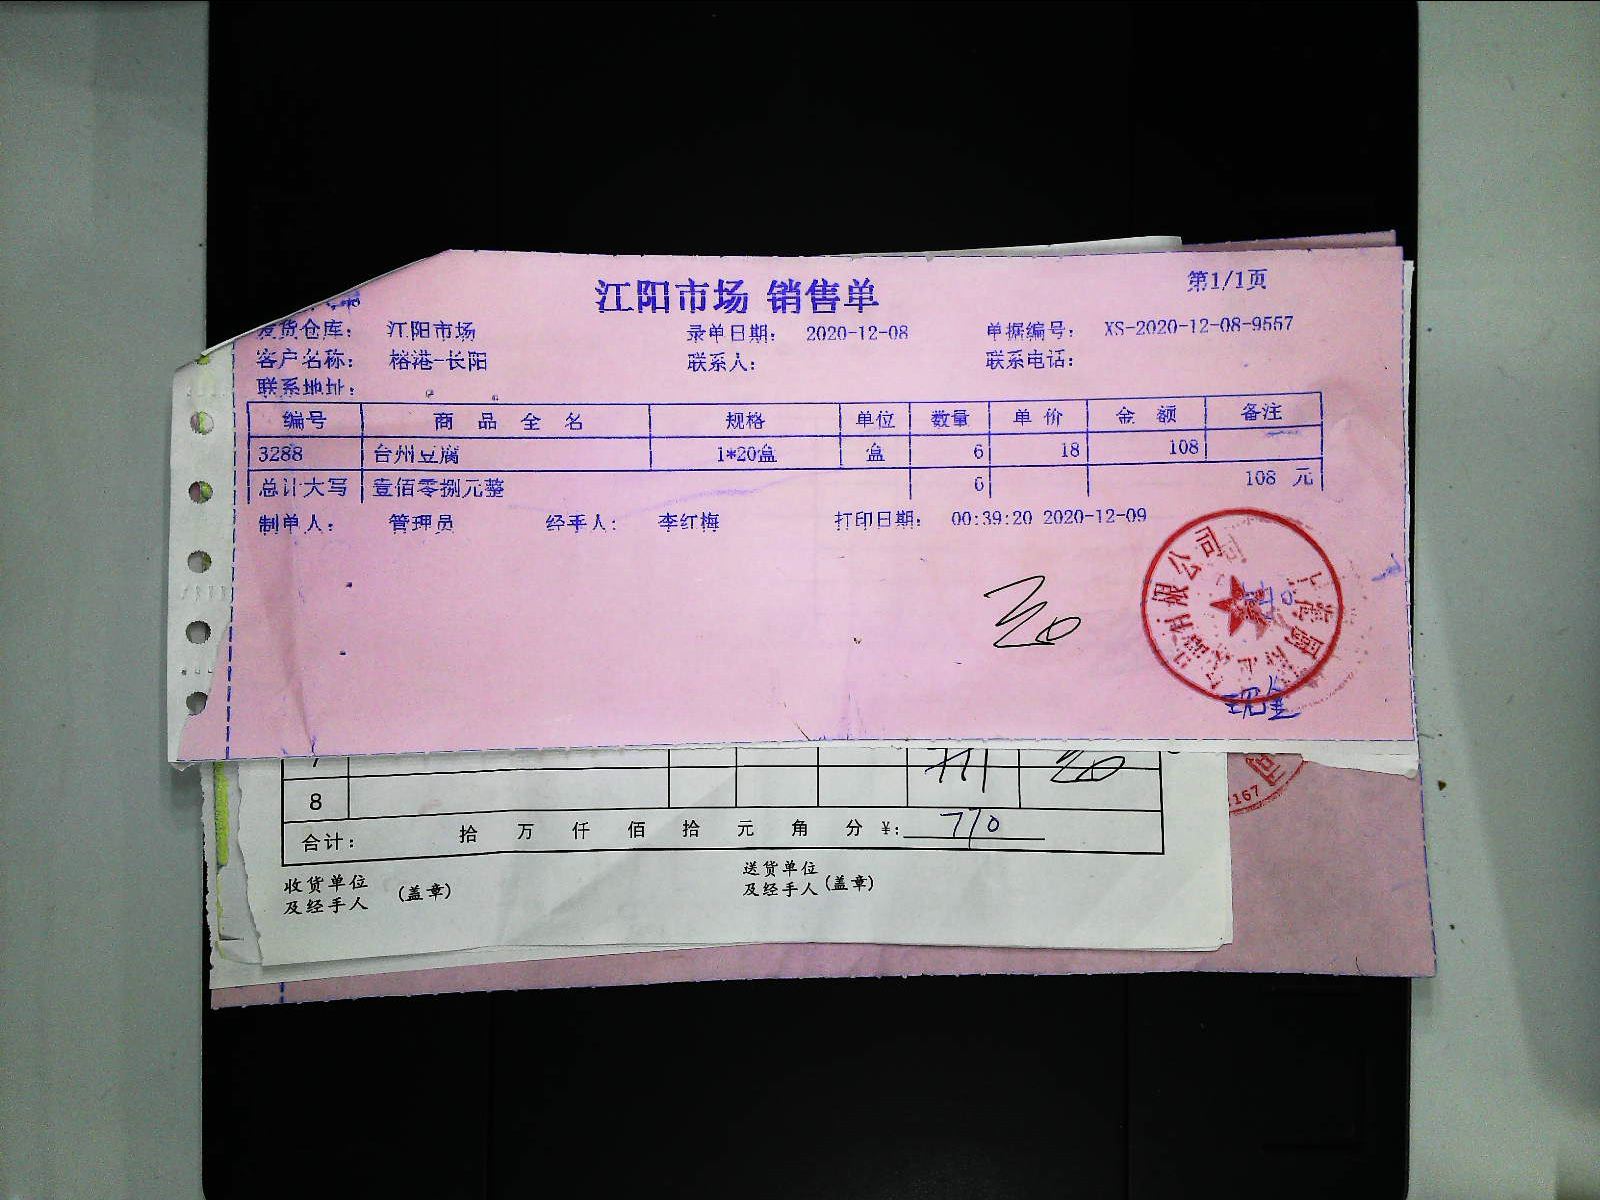 江阳市场 销售单
第1/1页
发货仓库： 江阳市场 录单日期： 2020-12-08 单据编号： XS-2020-12-08-9557
客户名称： 榕港-长阳 联系人： 联系电话：
联系地址：
编号 商品全名 规格 单位 数量 单价 金额 备注
3288 台州豆腐 1*20盒 盒 6 18 108
总计大写 壹佰零捌元整 6 108 元
制单人： 管理员 经手人： 李红梅 打印日期： 00:39:20 2020-12-09
限公司
现金
7
8
合计： 拾 万 仟 佰 拾 元 角 分 ￥：770
收货单位 (盖章) 送货单位 (盖章)
及经手人 及经手人
167